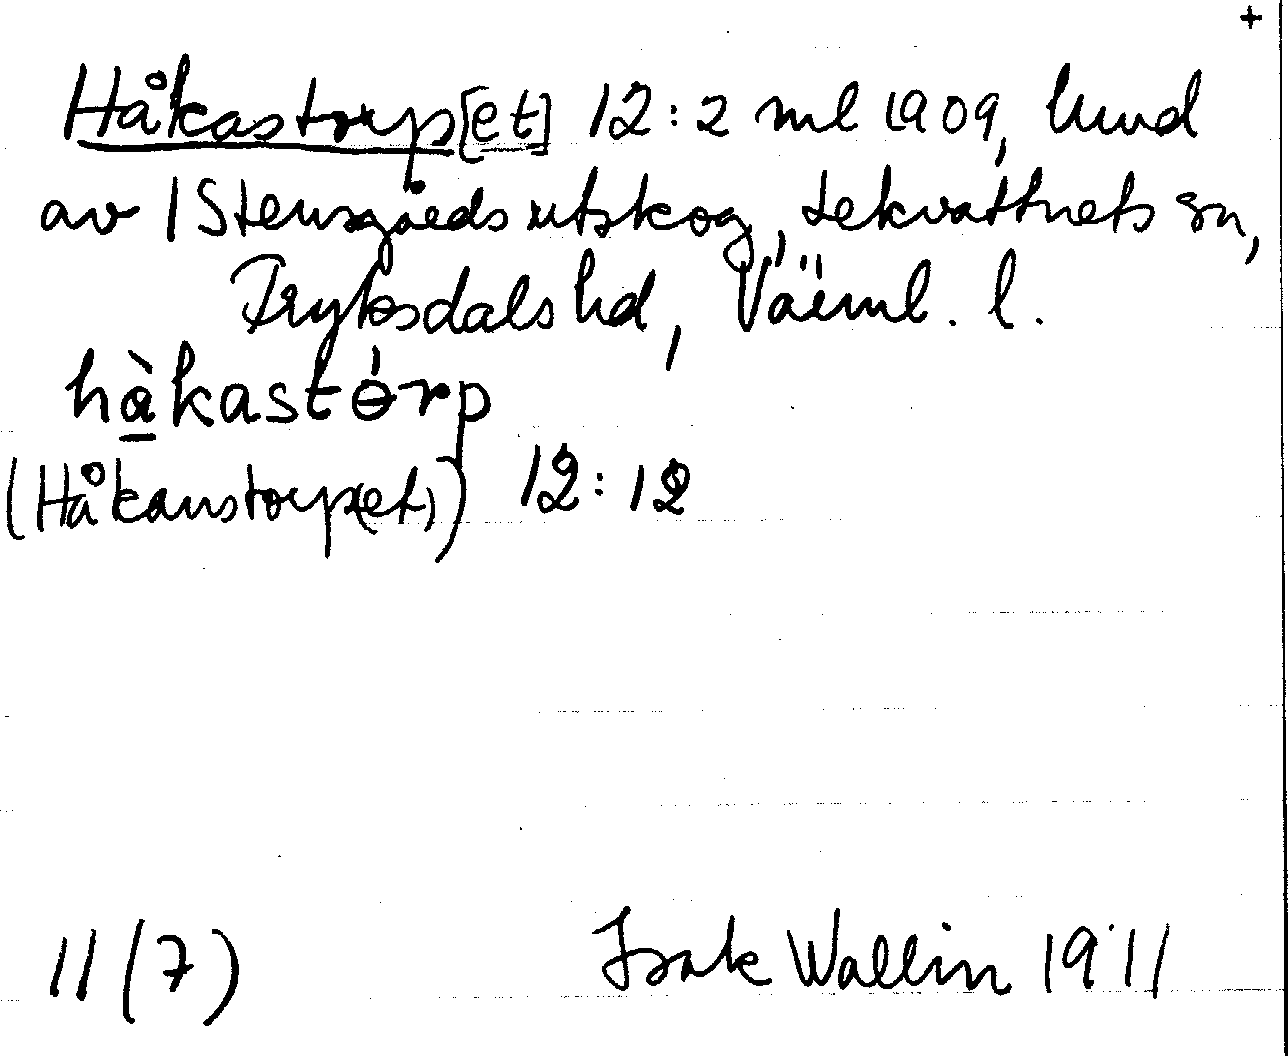 +
Håkastorp[et] 12:2 ml 1909, hmd
av 1 Stensgårds utskog, Lekvattnets sn,
Fryksdals hd, Värml. l.
hàkastɵ́rp
(Håkanstorp(et)) 12:12
11 (7) Isak Wallin 1911